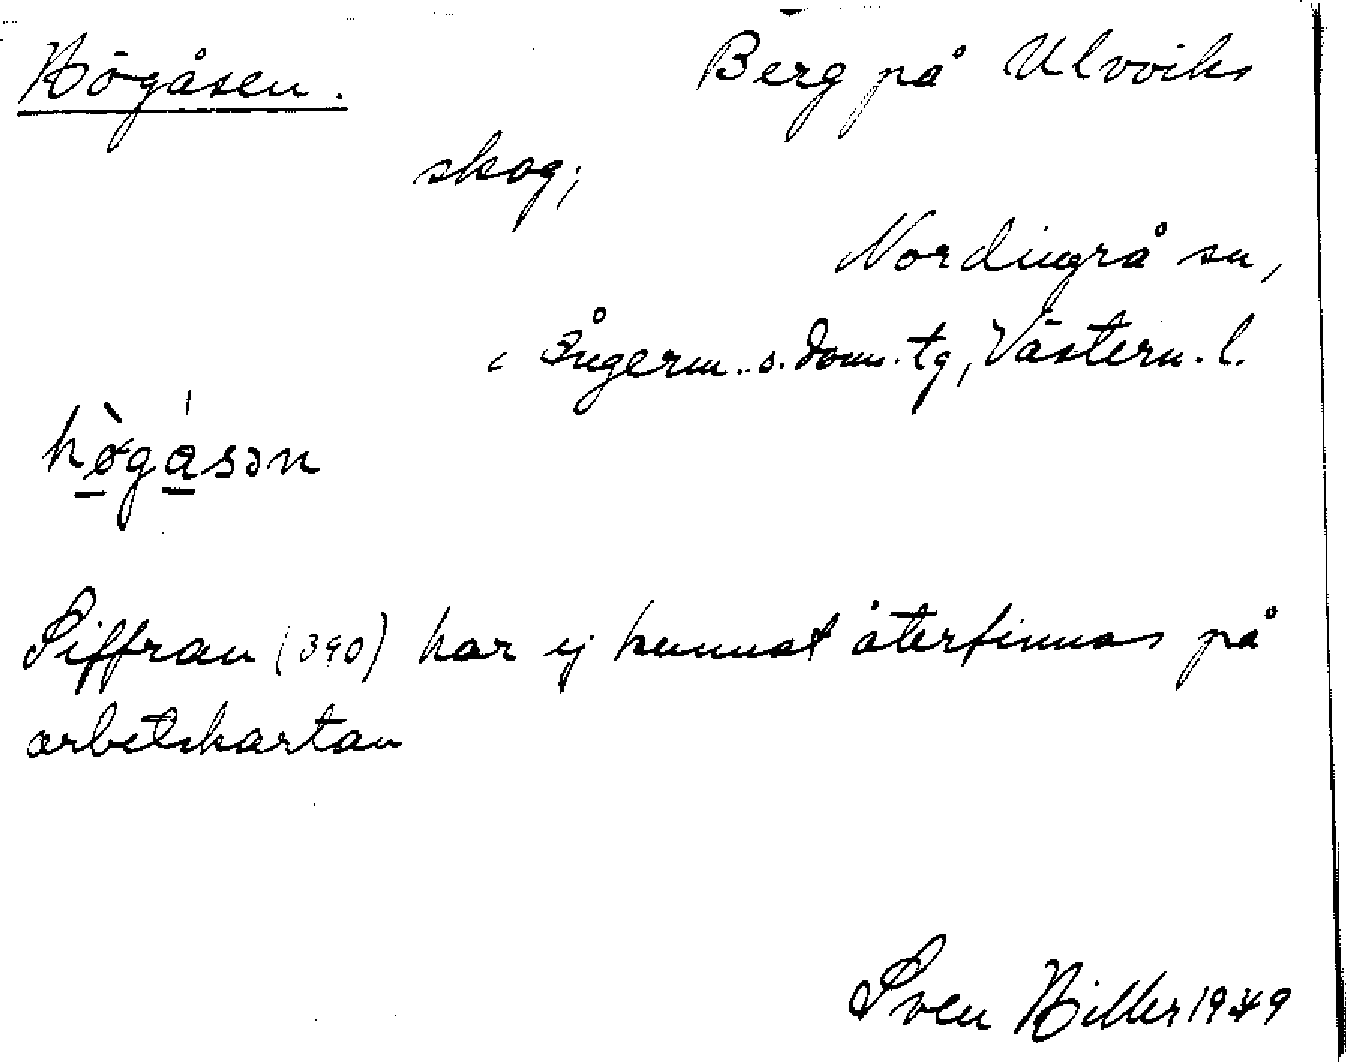 Högåsen. Berg på Ulvviks
skog;
Nordingrå sn,
i Ångerm. s. doms. tg, Västern. l.
hø̀gásən
Siffran (390) har ej kunnat återfinnas på
arbetskartan
Sven Hiller 1949